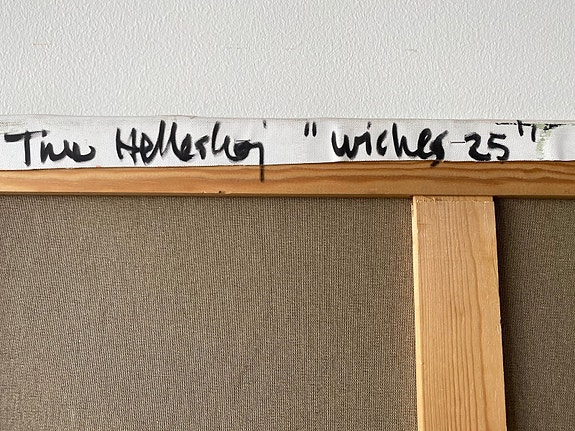 Tina Hellerhoj "wiches-25"